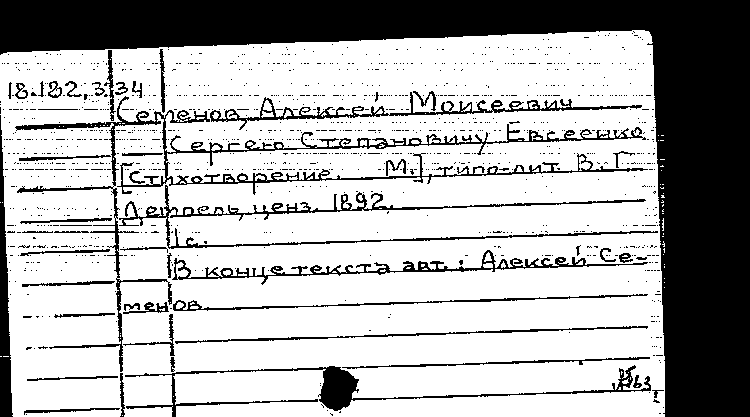 18.182.3.34
Семенов, Алексей Моисеевич
Сергею Степановичу Евсеенко
[Стихотворение. М.], типо-лит. В. Г.
ценз. 1892.
1 с.
В конце текста авт.: Алексей Се-
менов.